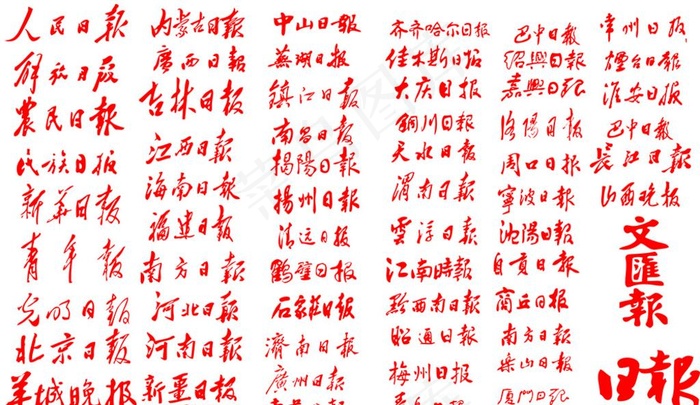 人民日報
解放日报
農民日報
民族日报
新華日報
青年報
光明日報
北京日報
羊城晚报
内蒙古日報
廣西日報
吉林日報
江西日報
海南日報
福建日報
南方日報
河北日報
河南日報
新疆日报
中山日報
蕪湖日报
鎮江日報
南昌日報
揭陽日報
揚州日報
清远日报
鶴壁日报
石家莊日報
濟南日報
廣州日報
齐齐哈尔日报
佳木斯日报
大庆日报
銅川日報
天水日報
渭南日報
雲浮日報
江南時報
黔西南日報
昭通日報
梅州日报
巴中日报
紹興日報
嘉興日报
洛陽日报
周口日报
寧波日報
沈陽日報
自貢日報
商丘日报
南方日報
乐山日報
厦门日报
常州日报
煙台日報
淮安日报
巴中日報
長江日報
山西晚报
文匯報
日報